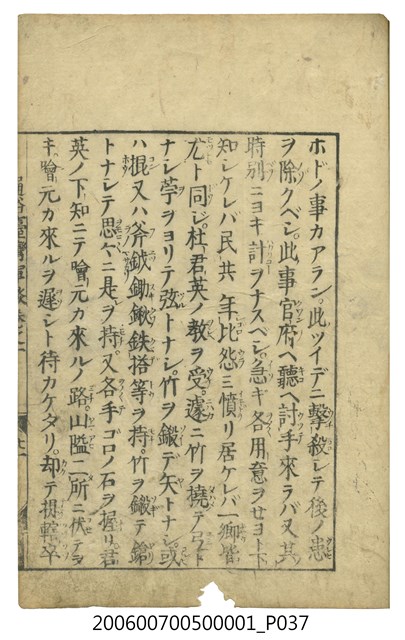 ホドノ事カアラン。此ツイデニ撃殺シテ後ノ患
ヲ除クベシ。此事官府ヘ聽ヘ討手來ラバ又其
時別ニヨキ計ヲナスベシ。急ギ各用意ヲせヨト下
知シケレバ民共年比怨ミ憤リ居ケレバ一郷皆
尤ト同ジ。杜君英ノ教ヲ受。遽ニ竹ヲ撓テ弓ト
ナシ苧ヲヨリテ弦トナシ。竹ヲ鍛テ矢トナシ。或
ハ棍又ハ斧鉞鋤鍬鉄搭等ヲ持。竹ヲ鍛テ鎗
トナシテ思々ニ是ヲ持。又各手ゴロノ石ヲ握リ。君
英ノ下知ニテ曾元カ來ルノ路。山隘二所ニ伏テ
キ曾元カ來ルヲ遲シト待カケタリ。却テ提轄卒
200600700500001_P037